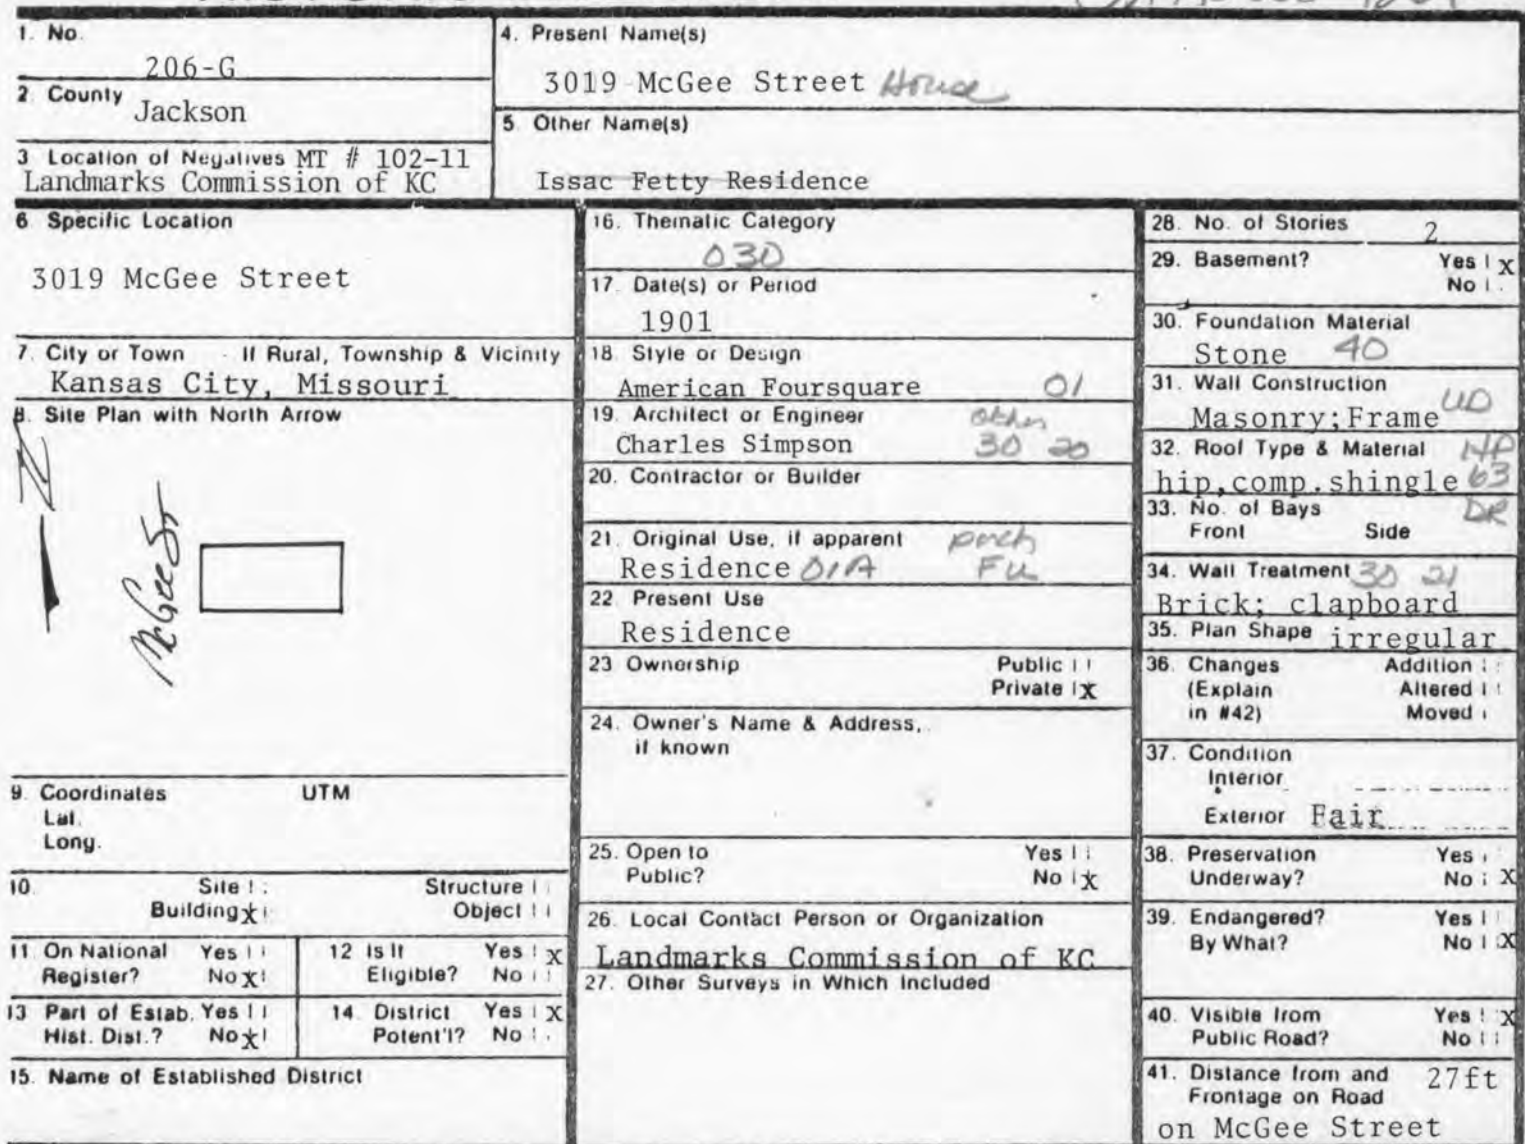 1. No.
206-G
2. County
Jackson
3 Location of Negatives MT # 102-11
Landmarks Commission of KC
4. Present Name(s)
3019 McGee Street House
5. Other Name(s)
Issac Fetty Residence
6 Specific Location
3019 McGee Street
7. City or Town If Rural, Township & Vicinity
Kansas City, Missouri
8. Site Plan with North Arrow
McGee St
9. Coordinates UTM
Lat.
Long.
10. Site Structure
Building x Object
11 On National Register? Yes No x
12 Is It Eligible? Yes x No
13 Part of Estab. Hist. Dist.? Yes No x
14. District Potent'l? Yes x No
15. Name of Established District
16. Thematic Category
030
17. Date(s) or Period
1901
18. Style or Design
American Foursquare 01
19. Architect or Engineer other
Charles Simpson 30 20
20. Contractor or Builder
21. Original Use, if apparent porch
Residence 01A FU
22. Present Use
Residence
23 Ownership Public
Private x
24. Owner's Name & Address,
if known
25. Open to Yes
Public? No x
26. Local Contact Person or Organization
Landmarks Commission of KC
27. Other Surveys in Which Included
28. No. of Stories 2
29. Basement? Yes x
No
30. Foundation Material
Stone 40
31. Wall Construction
Masonry;Frame UD
32. Roof Type & Material HP
hip,comp.shingle 63
33. No. of Bays DR
Front Side
34. Wall Treatment 30 21
Brick; clapboard
35. Plan Shape irregular
36. Changes Addition
(Explain Altered
in #42) Moved
37. Condition
Interior
Exterior Fair
38. Preservation Yes
Underway? No X
39. Endangered? Yes
By What? No X
40. Visible from Yes X
Public Road? No
41. Distance from and 27ft
Frontage on Road
on McGee Street